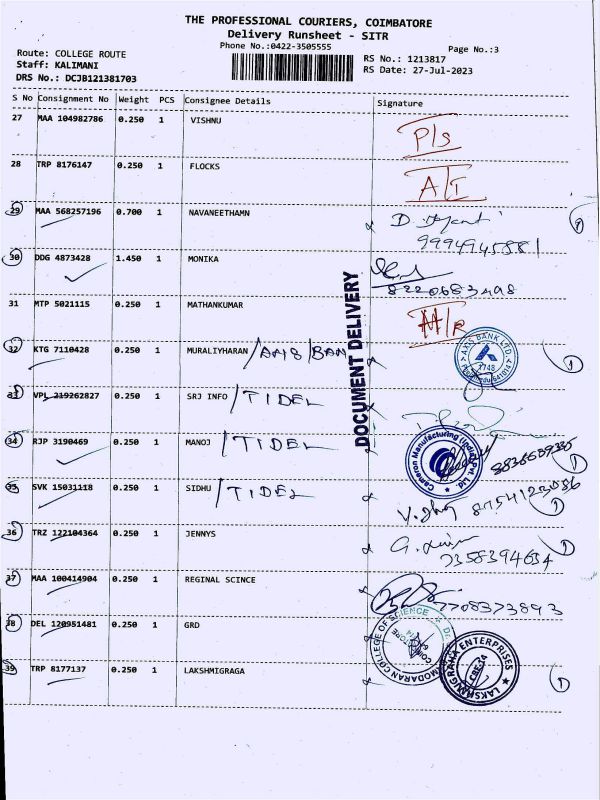 THE PROFESSIONAL COURIERS, COIMBATORE
Delivery Runsheet - SITR
Phone No.:0422-3505555
Page No.:3
Route: COLLEGE ROUTE
Staff: KALIMANI
DRS No.: DCJB121381703
RS No.: 1213817
RS Date: 27-Jul-2023
S No Consignment No Weight PCS Consignee Details Signature
27 MAA 104982786 0.250 1 VISHNU P/S
28 TRP 8176147 0.250 1 FLOCKS
29 MAA 568257196 0.700 1 NAVANEETHAMN
30 DDG 4873428 1.450 1 MONIKA
8220683498
31 MTP 5021115 0.250 1 MATHANKUMAR
DOCUMENT DELIVERY
32 KTG 7110428 0.250 1 MURALIYHARAN
AXIS BANK LTD.
33 VPL 219262827 0.250 1 SRJ INFO /TIDEL
34 RJP 3190469 0.250 1 MANOJ /TIDEL
Cameron Manufacturing (India) Pvt. Ltd.
35 SVK 15031118 0.250 1 SIDHU /TIDEL
36 TRZ 122104364 0.250 1 JENNYS
7358394634
37 MAA 100414904 0.250 1 REGINAL SCINCE
7708373893
38 DEL 120951481 0.250 1 GRD
COLLEGE OF SCIENCE
39 TRP 8177137 0.250 1 LAKSHMIGRAGA
LAKSHMIGRAHA ENTERPRISES